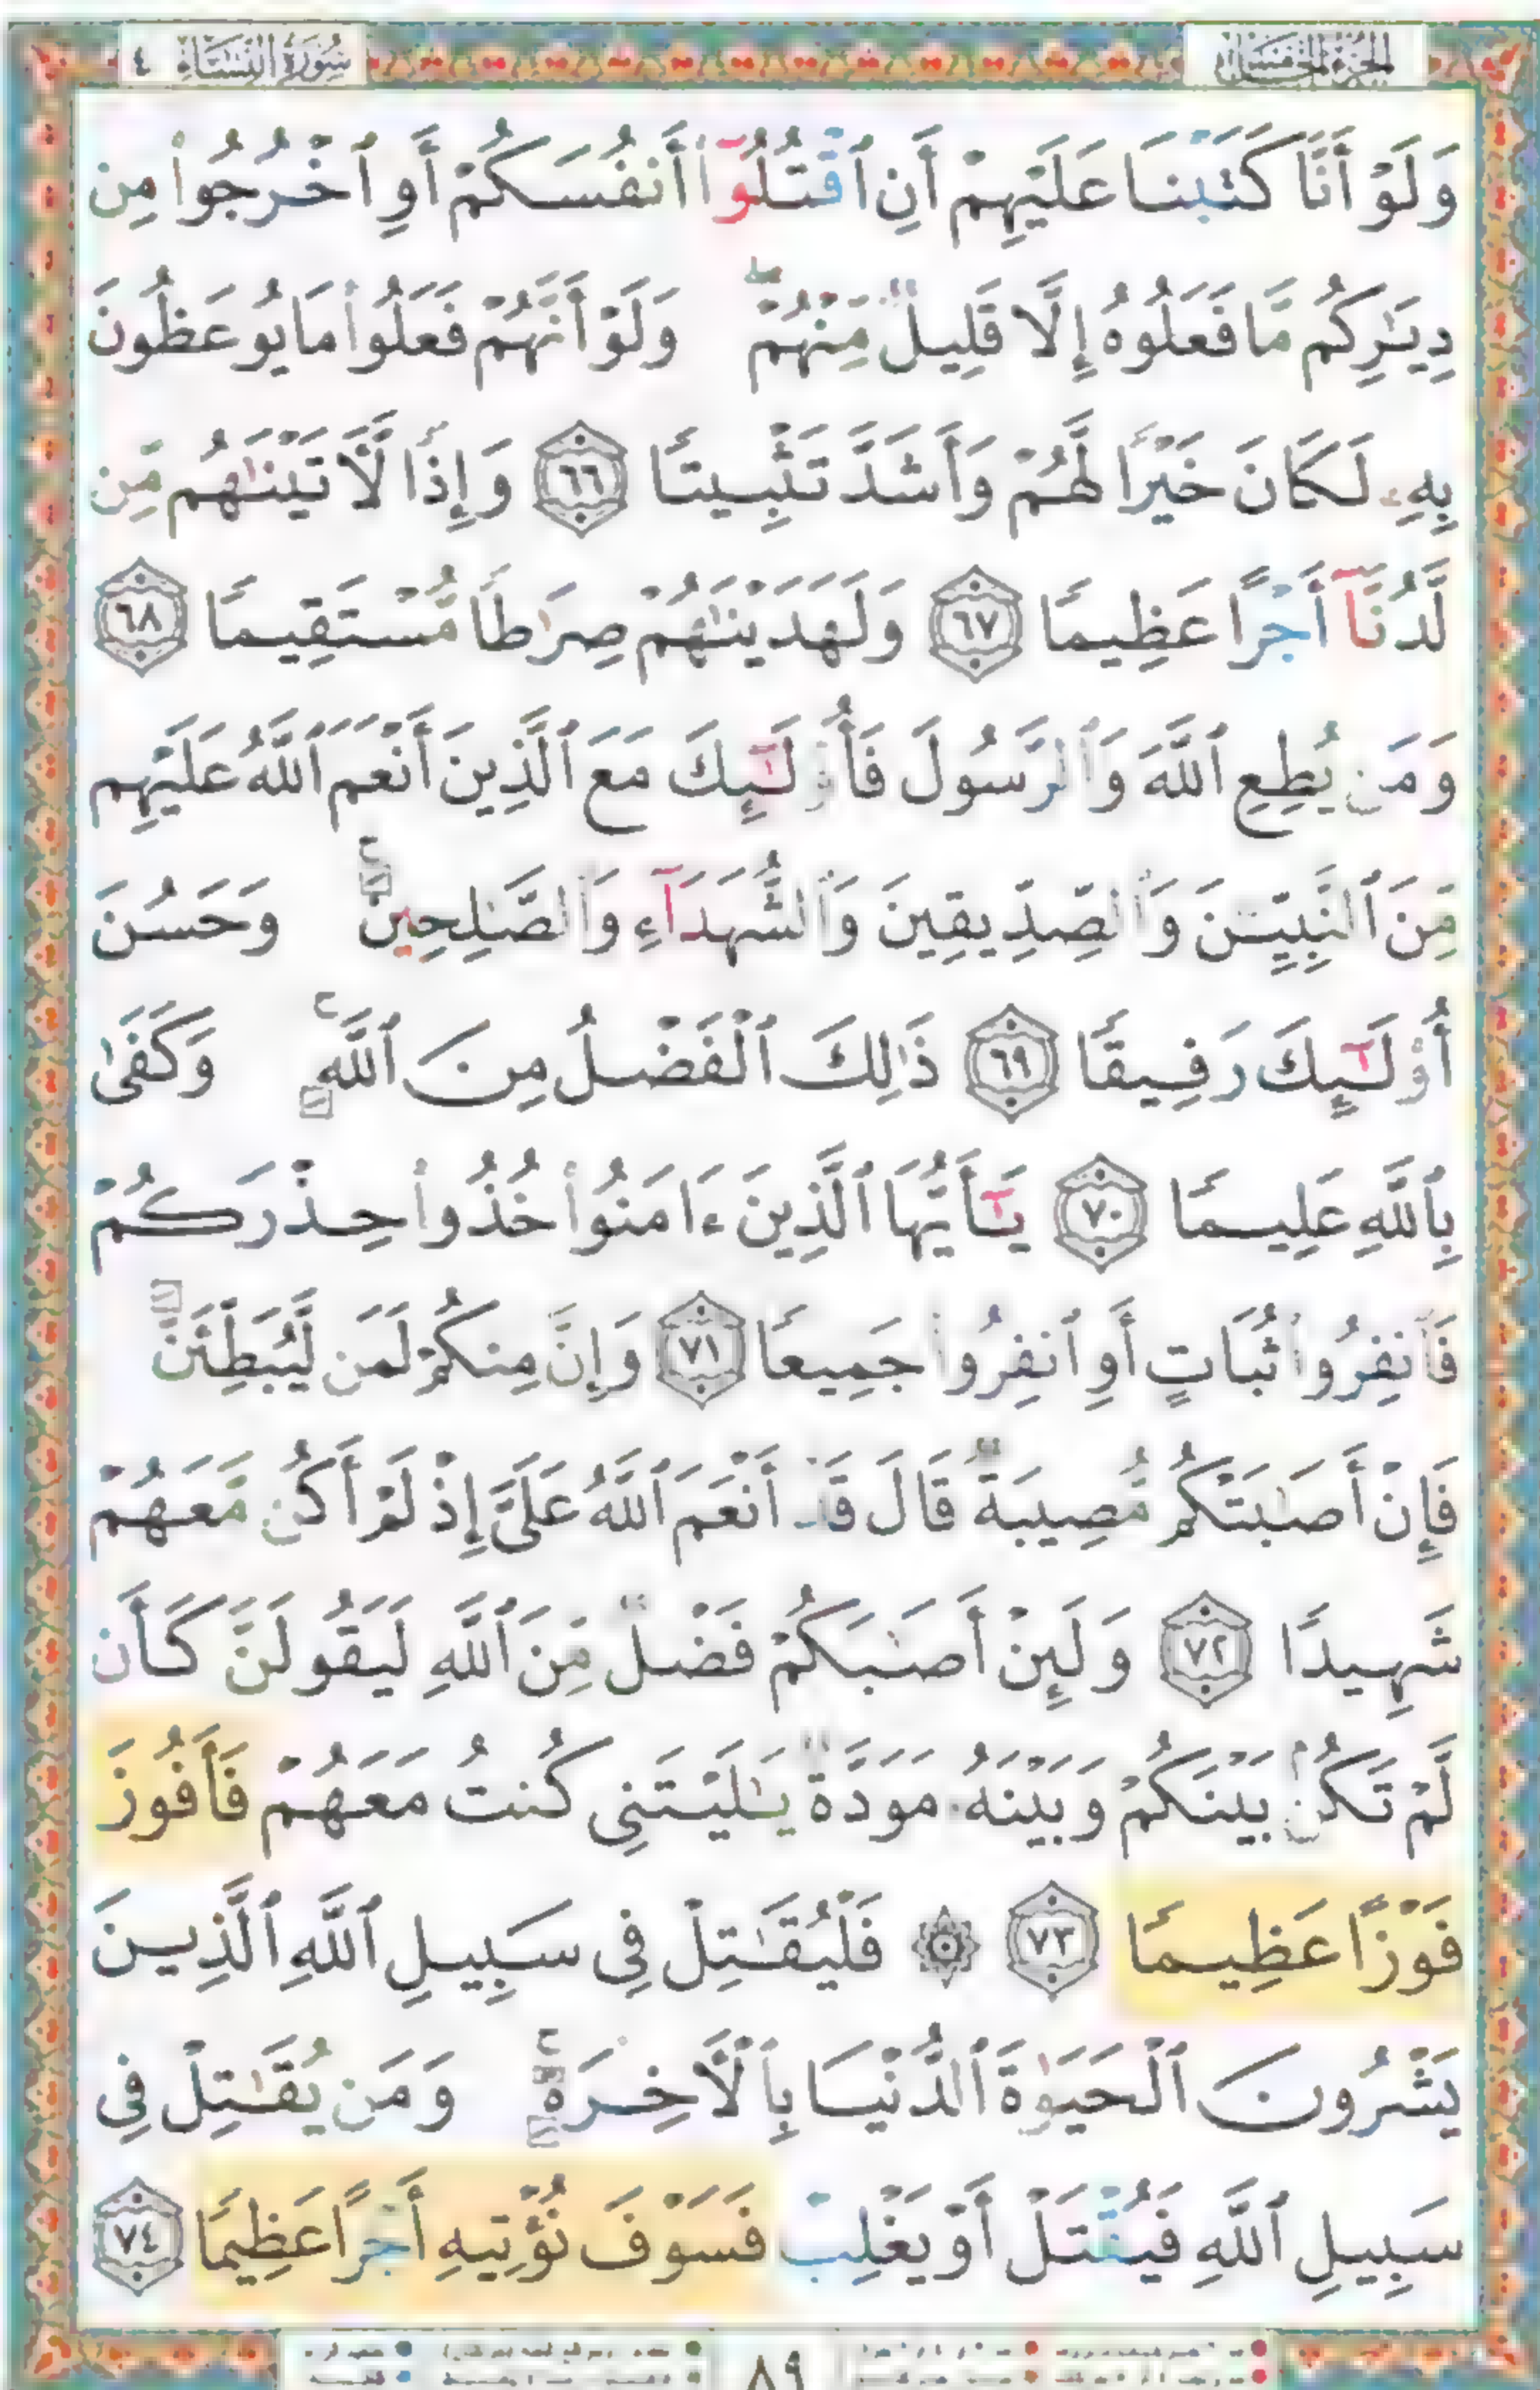 سُورَةُ النِّسَاءِ ٤
الجُزْءُ الخَامِسُ
وَلَوْ أَنَّا كَتَبْنَا عَلَيْهِمْ أَنِ ٱقْتُلُوٓا۟ أَنفُسَكُمْ أَوِ ٱخْرُجُوا۟ مِن
دِيَٰرِكُم مَّا فَعَلُوهُ إِلَّا قَلِيلٌ مِّنْهُمْ ۖ وَلَوْ أَنَّهُمْ فَعَلُوا۟ مَا يُوعَظُونَ
بِهِۦ لَكَانَ خَيْرًا لَّهُمْ وَأَشَدَّ تَثْبِيتًا ٦٦ وَإِذًا لَّءَاتَيْنَٰهُم مِّن
لَّدُنَّآ أَجْرًا عَظِيمًا ٦٧ وَلَهَدَيْنَٰهُمْ صِرَٰطًا مُّسْتَقِيمًا ٦٨
وَمَن يُطِعِ ٱللَّهَ وَٱلرَّسُولَ فَأُو۟لَٰٓئِكَ مَعَ ٱلَّذِينَ أَنْعَمَ ٱللَّهُ عَلَيْهِم
مِّنَ ٱلنَّبِيِّـۧنَ وَٱلصِّدِّيقِينَ وَٱلشُّهَدَآءِ وَٱلصَّٰلِحِينَ ۚ وَحَسُنَ
أُو۟لَٰٓئِكَ رَفِيقًا ٦٩ ذَٰلِكَ ٱلْفَضْلُ مِنَ ٱللَّهِ ۚ وَكَفَىٰ
بِٱللَّهِ عَلِيمًا ٧٠ يَٰٓأَيُّهَا ٱلَّذِينَ ءَامَنُوا۟ خُذُوا۟ حِذْرَكُمْ
فَٱنفِرُوا۟ ثُبَاتٍ أَوِ ٱنفِرُوا۟ جَمِيعًا ٧١ وَإِنَّ مِنكُمْ لَمَن لَّيُبَطِّئَنَّ
فَإِنْ أَصَٰبَتْكُم مُّصِيبَةٌ قَالَ قَدْ أَنْعَمَ ٱللَّهُ عَلَىَّ إِذْ لَمْ أَكُن مَّعَهُمْ
شَهِيدًا ٧٢ وَلَئِنْ أَصَٰبَكُمْ فَضْلٌ مِّنَ ٱللَّهِ لَيَقُولَنَّ كَأَن
لَّمْ تَكُنۢ بَيْنَكُمْ وَبَيْنَهُۥ مَوَدَّةٌ يَٰلَيْتَنِى كُنتُ مَعَهُمْ فَأَفُوزَ
فَوْزًا عَظِيمًا ٧٣ ۞ فَلْيُقَٰتِلْ فِى سَبِيلِ ٱللَّهِ ٱلَّذِينَ
يَشْرُونَ ٱلْحَيَوٰةَ ٱلدُّنْيَا بِٱلْءَاخِرَةِ ۚ وَمَن يُقَٰتِلْ فِى
سَبِيلِ ٱللَّهِ فَيُقْتَلْ أَوْ يَغْلِبْ فَسَوْفَ نُؤْتِيهِ أَجْرًا عَظِيمًا ٧٤
٨٩